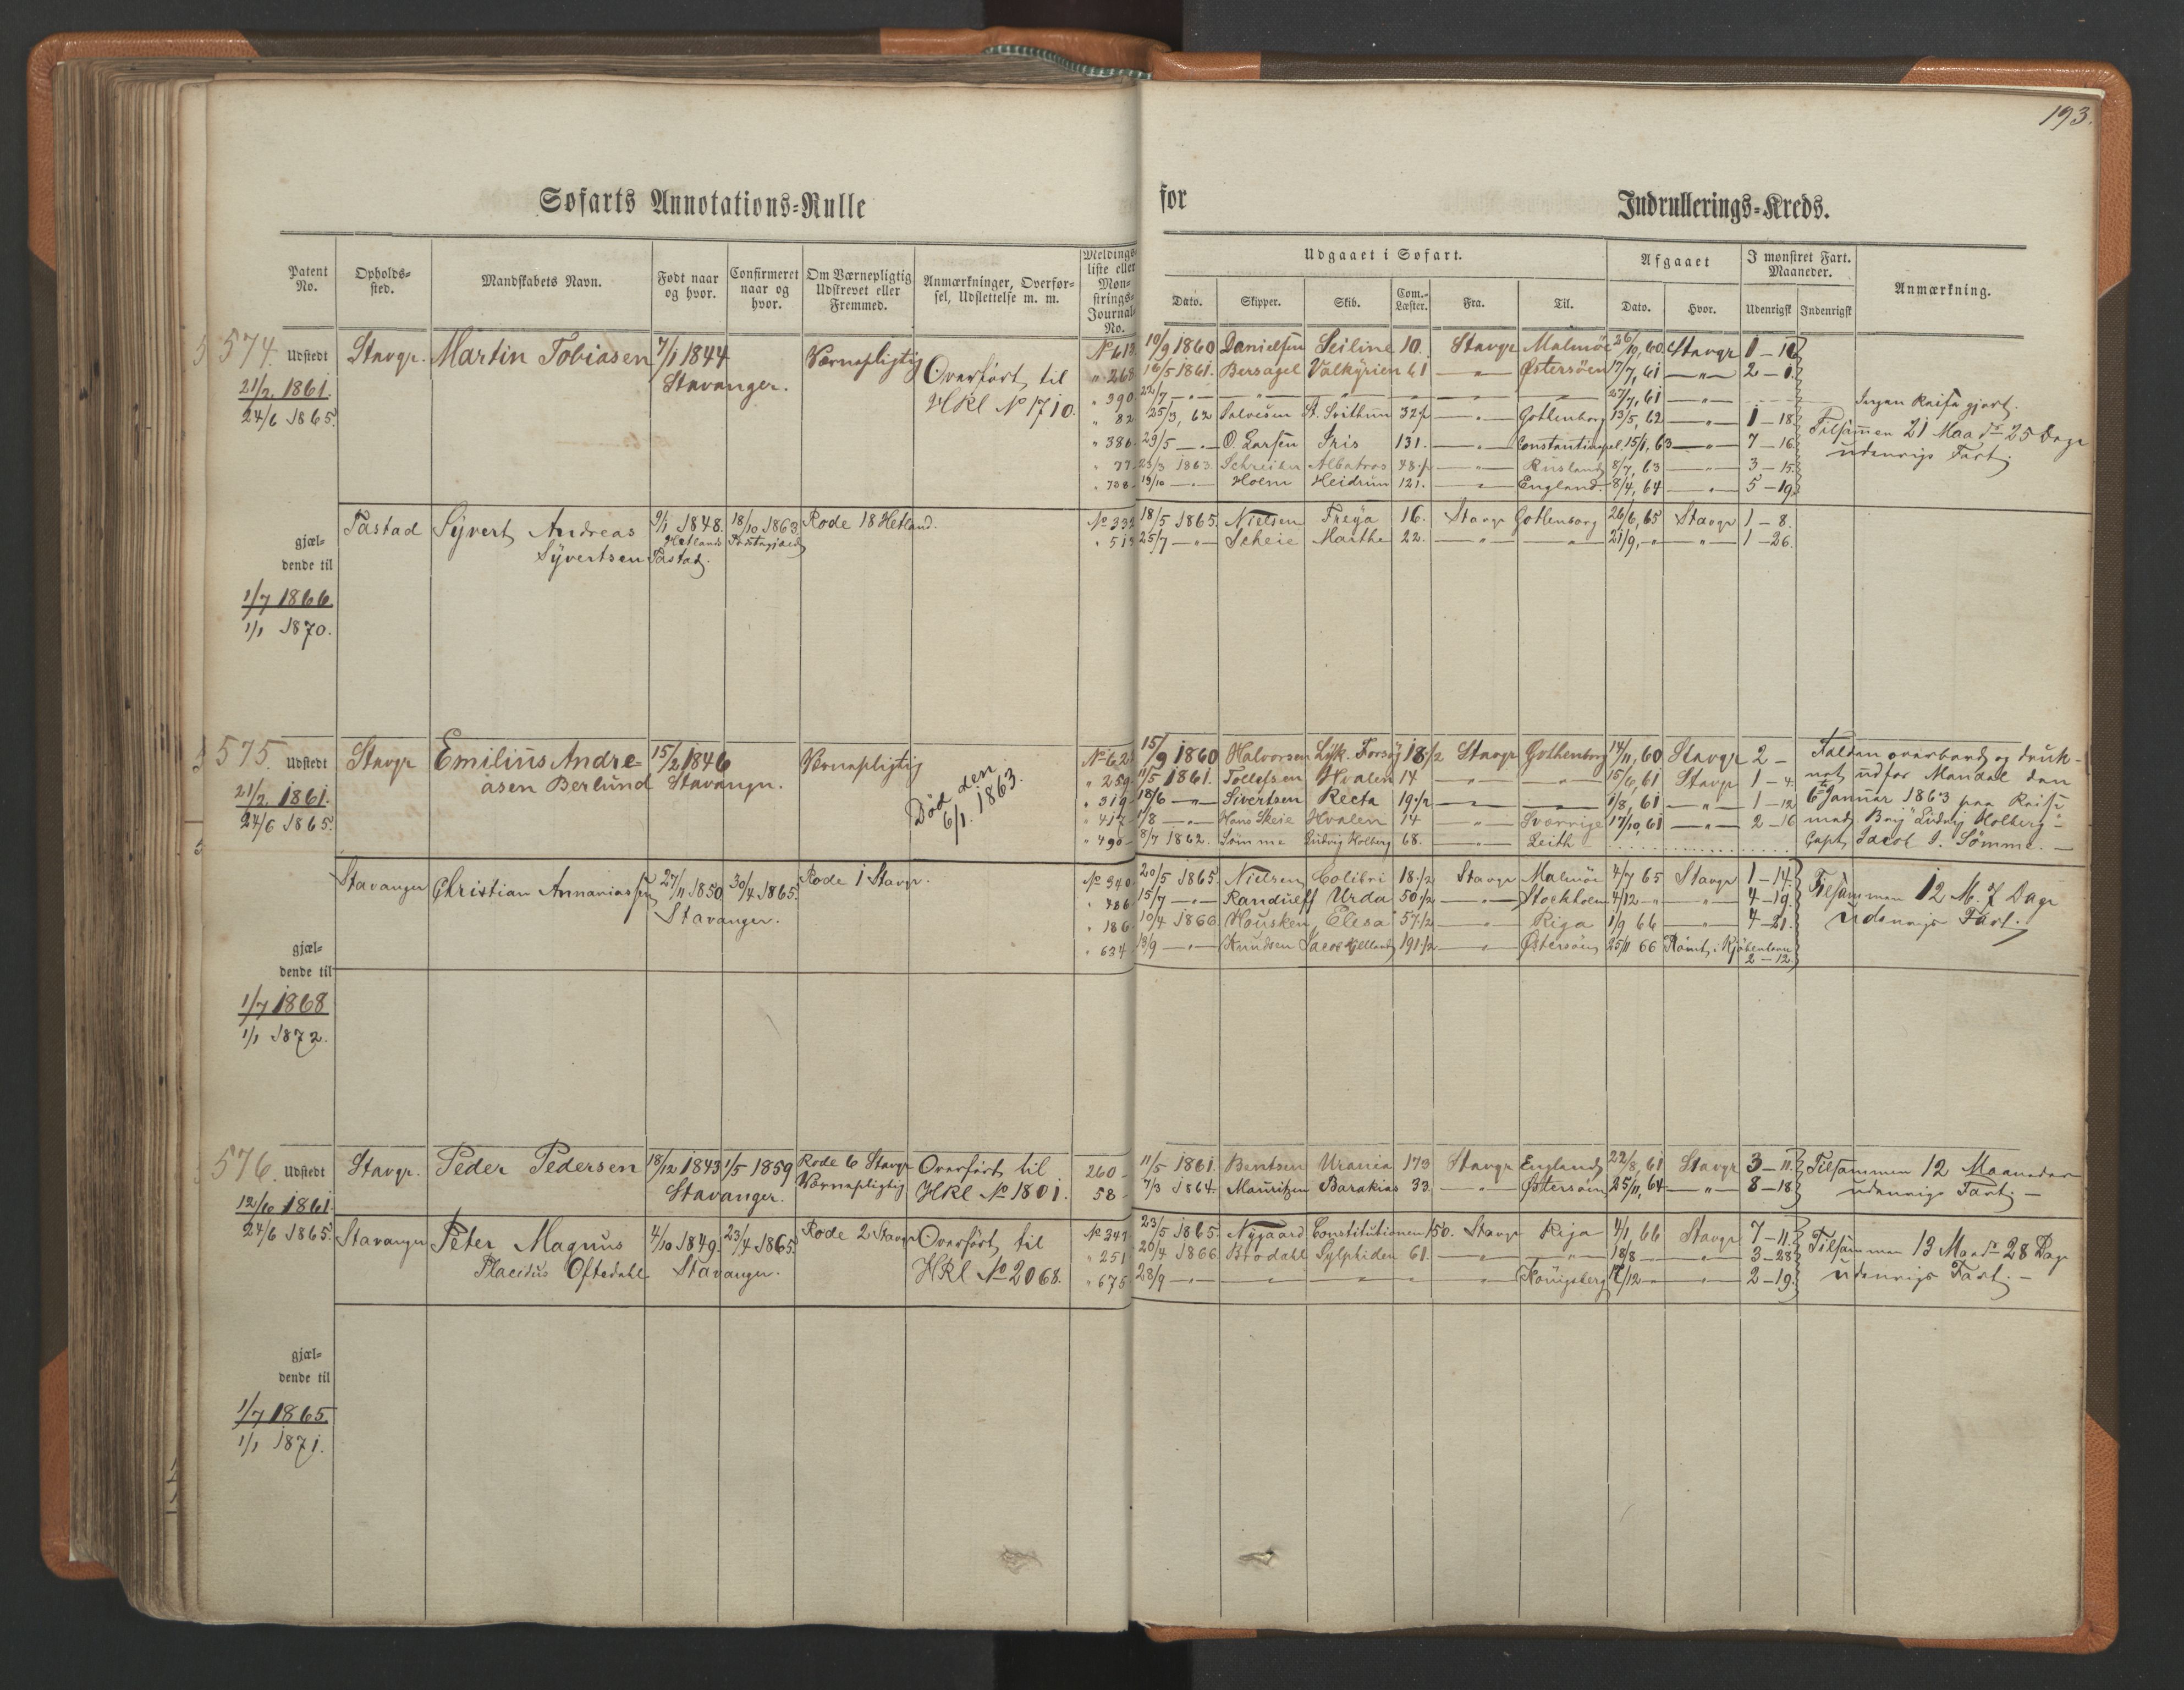 193.
Søfarts Annotations=Rulle for Indrullerings=Kreds.
Patent No. Opholds=sted. Mandskabets Navn. Født naar og hvor. Confirmeret naar og hvor. Om Værnepligtig Udskrevet eller Fremmed. Anmærkninger, Overfør=sel, Udslettelse m. m. Meldings=liste eller Mon=strings=Journal=No.
Udgaaet i Søfart. Afgaaet I mønstret Fart. Maaneder. Anmærkning.
Dato. Skipper. Skib. Com.=Læster. Fra. Til. Dato. Hvor. Udenrigst Indenrigst
574. Udstedt Stavgr. Martin Tobiasen 7/1 1844 Værnepligtig No 613 10/9 1860 Danielsen Seiline 10. Stavgr Malmöe 26/10, 60 Stavgr 1 – 16
21/2 1861. Stavanger. Overført til " 268 16/5 1861. Bersagel Valkyrien 61 — " — Østersöen 17/7, 61 — " — 2 – 1.
24/6 1865. HKl No 1710. " 390 22/7 — " — — " — — " — — " — — " — 27/7, 61 — " — Ingen Reise gjort.
" 82 25/3, 62 Salvesen St. Svithun 32 1/2 — " — Gothenborg 13/5, 62 — " — 1 – 18 Tilsammen 21 Maadr 25 Dage
" 386 29/5 — " — O. Larsen Iris 131. — " — Constantinopel 15/1, 63 — " — 7 – 16 udenrigs Fart.
" 77 23/3 1863. Schreiber Albatros 48 1/2 — " — Rusland 8/7, 63 — " — 3 – 15
" 708 19/10 — " — Holm Heidrun 121. — " — England. 8/4, 64 — " — 5 – 19
Tastad Syvert Andreas 9/1 1848. 18/10 1863 Rode 18 Hetland. No 332 18/5 1865. Nielsen Freya 16. Stavgr Gothenborg 26/6, 65 Stavgr 1 – 8.
gjæl=dende til Syvertsen Hetlands Tastad. Præstegjæld " 513 25/7 — " — Scheie Marthe 22. — " — — " — 21/9, — " — — " — 1 – 26.
1/7 1866.
1/1 1870.
575. Udstedt Stavgr Emilius Andre= 15/2 1846 Værnepligtig No 62 15/9 1860 Halvorsen Lyk. Forsøg 18 1/2 Stavgr Gothenborg 14/11, 60 Stavgr 2 – Falden overbord og druk-
21/2 1861. asen Berlund Stavangr. Død den " 259 11/5 1861. Tollefsen Hvalen 14 — " — — " — 15/6, 61 Stavgr 1 – 4. net udfor Mandal den
24/6 1865. 6/1. 1863. " 319 18/6 — " — Sivertsen Recta 19 1/2 — " — — " — 1/8, 61 — " — 1 – 12 6te Januar 1863 paa Reise
" 417 1/8 — " — Hans Skeie Hvalen 14 — " — Sverrige 17/10, 61 — " — 2 – 16 med Brig "Ludvig Holberg"
" 490 8/7 1862. Sömme Ludvig Holberg 68. — " — Leith Capt. Jacob J. Sömme. —
Stavanger Christian Annaniassen 27/11 1850 30/4 1865. Rode 1 Stavgr. No 340 20/5 1865. Nielsen Colibri 18 1/2 Stavgr Malmöe 4/7 65 Stavgr 1 – 14. Tilsammen 12 M. 7 Dage
Stavanger. " 486 15/7 — " — Randulff Urda 50 1/2 — " — Stockholm 4/12 — " — — " — 4 – 19. udenrigs Fart.
" 186 10/4 1866 Housken Elesa 57 1/2 — " — Riga 1/9 66 — " — 4 – 21.
gjæl=dende til " 634 13/9 — " — Knudsen Jacob Kjelland 191 1/2 — " — Østersöen 25/11 66 Römt i Kjöbenhavn 2 – 12.
1/7 1868
1/1 1872.
576. Udstedt Stavgr. Peder Pedersen 18/12 1843 1/5 1859 Rode 6 Stavgr Overført til 260 – 11/5 1861. Bentsen Urania 173 Stavgr England 22/8, 61 Stavgr 3 – 11. Tilsammen 12 Maaneder
12/6 1861. Stavanger. Værnepligtig HKl No 1801. 58 – 7/3 1864. Mauritzen Barakias 33. — " — Østersöen 25/11, 64 — " — 8 – 18 udenrigs Fart. —
24/6 1865. Stavanger Peter Magnus 4/10 1849. 23/4 1865. Rode 2 Stavgr Overført til No 347 23/5 1865. Nygaard Constitutionen 150. Stavgr Riga 4/1 66 Stavgr 7 – 11. Tilsammen 13 Maadr 28 Dage
Placidus Oftedahl Stavanger. HKl No 2068. " 251 20/4 1866 Brödahl Sylphiden 61. — " — — " — 18/8 — " — 3 – 28 udenrigs Fart. —
" 675 28/9 — " — — " — — " — — " — — " — Königsberg 17/12 — " — 2 – 19.
gjæl=dende til
1/7 1865.
1/1 1871.